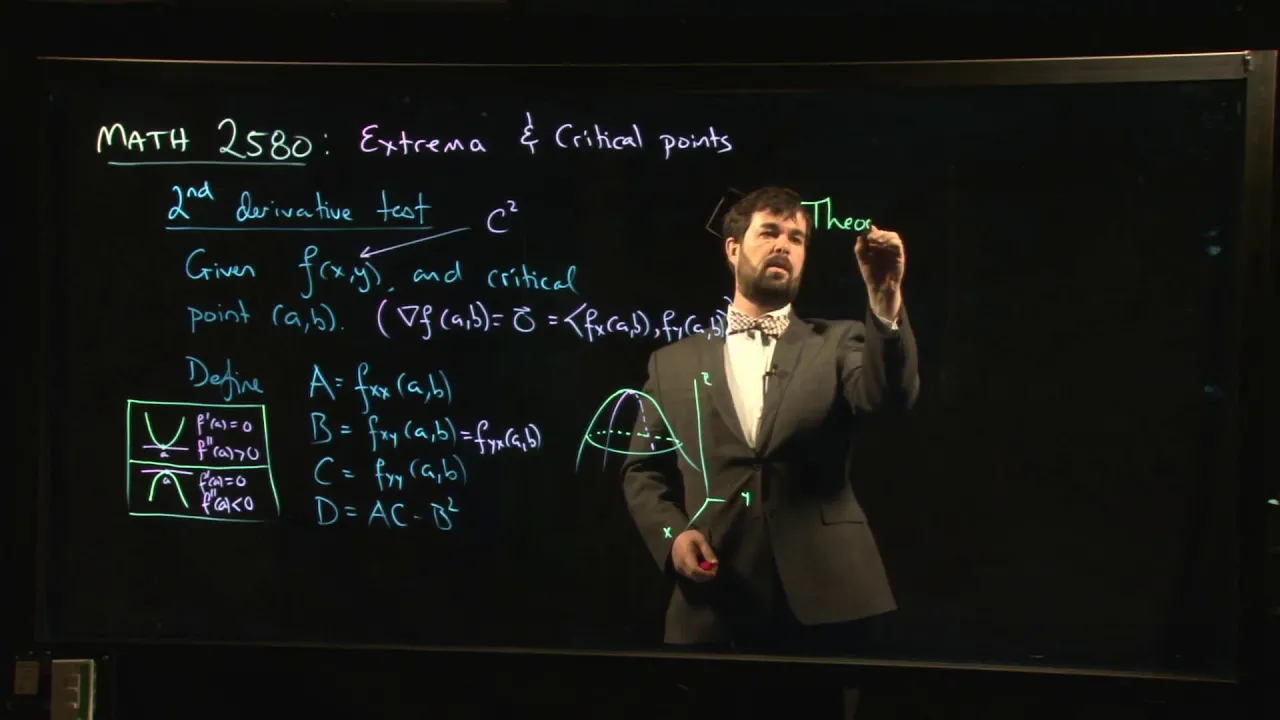 MATH 2580: Extrema & Critical points
2nd derivative test
C²
Given f(x,y), and critical
point (a,b). (∇f(a,b)=0⃗ = <fx(a,b), fy(a,b)>
Define
A = fxx(a,b)
B = fxy(a,b) = fyx(a,b)
C = fyy(a,b)
D = AC - B²
a
f'(a)=0
f''(a)>0
a
f'(a)=0
f''(a)<0
z
y
x
Theo